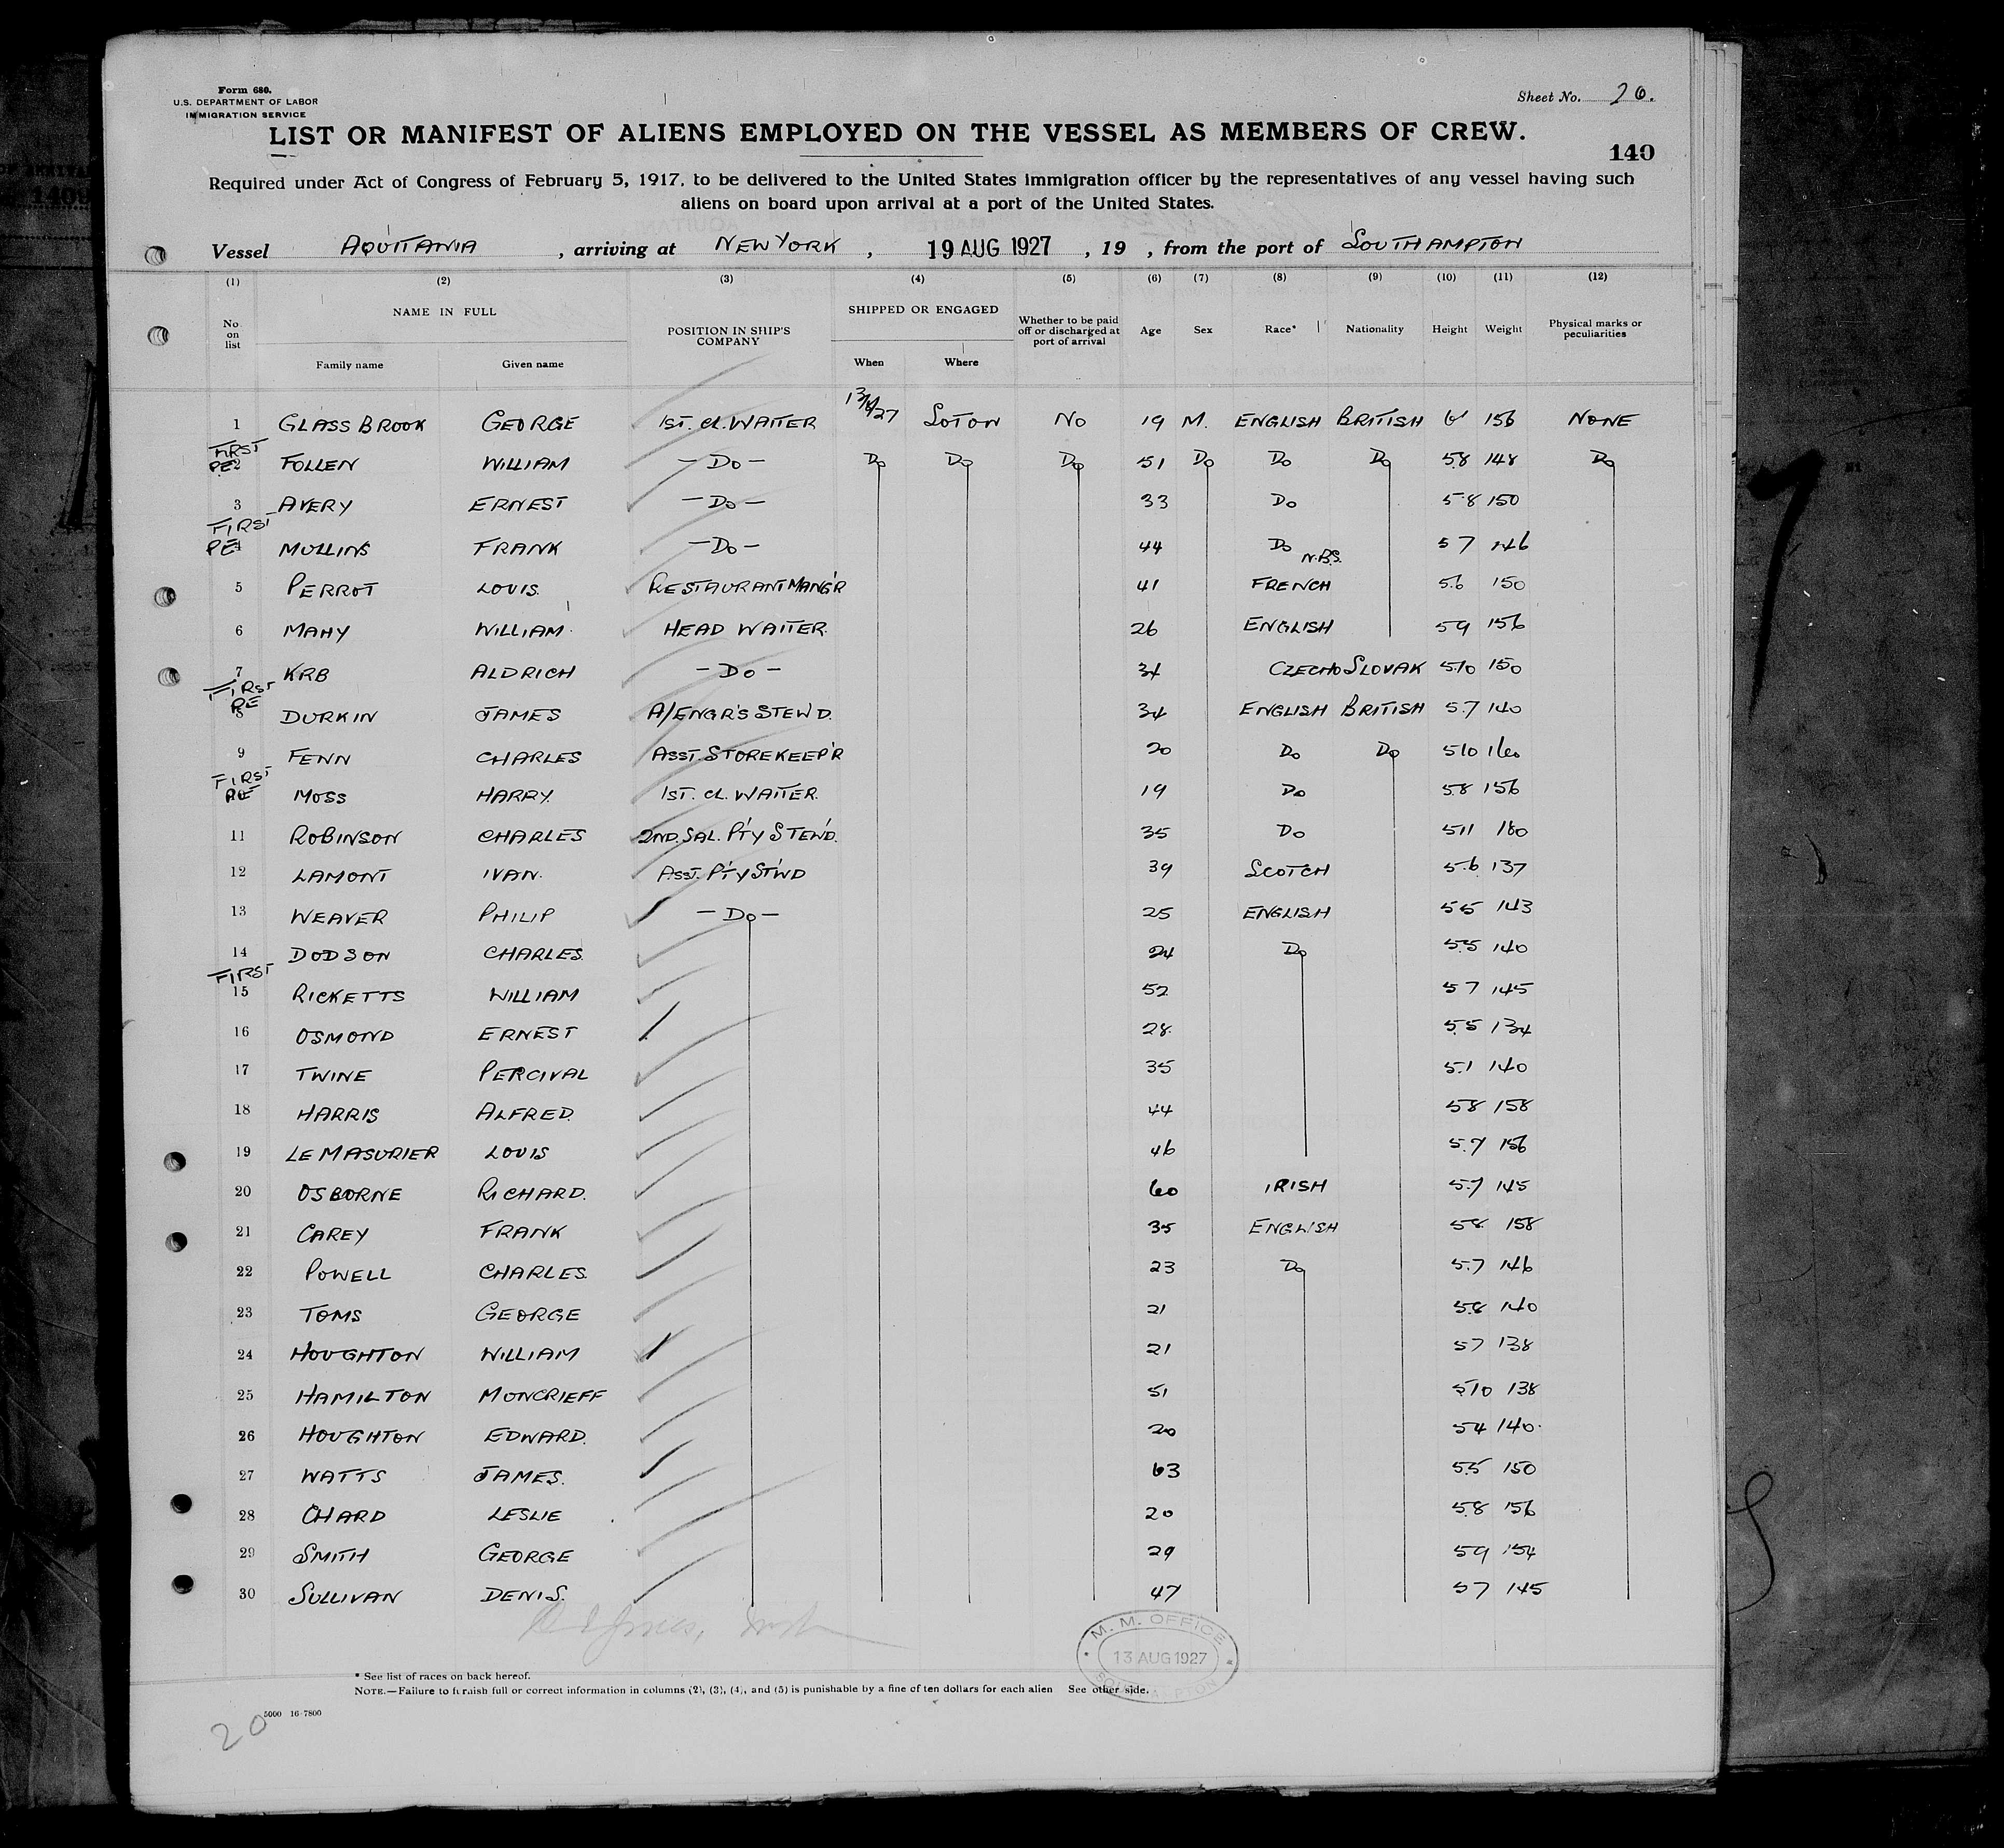 Form 680.
U.S. DEPARTMENT OF LABOR
IMMIGRATION SERVICE
Sheet No. 20.
LIST OR MANIFEST OF ALIENS EMPLOYED ON THE VESSEL AS MEMBERS OF CREW.
140
Required under Act of Congress of February 5, 1917, to be delivered to the United States immigration officer by the representatives of any vessel having such
aliens on board upon arrival at a port of the United States.
Vessel AQUITANIA , arriving at NEW YORK , 19 AUG 1927 , 19 , from the port of SOUTHAMPTON
(1) (2) (3) (4) (5) (6) (7) (8) (9) (10) (11) (12)
No on list NAME IN FULL Family name Given name POSITION IN SHIP'S COMPANY SHIPPED OR ENGAGED When Where Whether to be paid off or discharged at port of arrival Age Sex Race* Nationality Height Weight Physical marks or peculiarities
1 GLASSBROOK GEORGE 1ST. CL. WAITER 13/8/27 SOTON NO 19 M. ENGLISH BRITISH 6' 156 NONE
FIRST PE 2 FOLLEN WILLIAM - DO - DO DO DO 51 DO DO DO 5.8 148 DO
3 AVERY ERNEST - DO - 33 DO 5.8 150
FIRST PE 4 MULLINS FRANK - DO - 44 DO 5 7 146
N.B.S.
5 PERROT LOUIS. RESTAURANT MANG'R 41 FRENCH 5.6 150
6 MAHY WILLIAM. HEAD WAITER. 26 ENGLISH 5 9 156
7 KRB ALDRICH - DO - 34 CZECHO SLOVAK 5.10 150
FIRST PE 8 DURKIN JAMES A/ENGR'S STEW'D. 34 ENGLISH BRITISH 5.7 140
9 FENN CHARLES ASST. STOREKEEP'R 20 DO DO 510 160
FIRST PE 10 MOSS HARRY. 1ST. CL. WAITER. 19 DO 5.8 156
11 ROBINSON CHARLES 2ND. SAL. P'TY STEW'D. 35 DO 511 180
12 LAMONT IVAN. ASST. P'TY ST'WD 39 SCOTCH 5.6 137
13 WEAVER PHILIP - DO - 25 ENGLISH 5 5 143
14 DODSON CHARLES. 24 DO 5.5 140
FIRST
15 RICKETTS WILLIAM 52 5 7 145
16 OSMOND ERNEST 28. 5.5 134
17 TWINE PERCIVAL 35 5.1 140
18 HARRIS ALFRED. 44 5.8 158
19 LE MASURIER LOUIS 46 5.7 156
20 OSBORNE RICHARD. 60 IRISH 5.7 145
21 CAREY FRANK 35 ENGLISH 58 158
22 POWELL CHARLES. 23 DO 5.7 146
23 TOMS GEORGE 21 5.8 140
24 HOUGHTON WILLIAM 21 57 138
25 HAMILTON MONCRIEFF 51 510 138
26 HOUGHTON EDWARD. 20 54 140.
27 WATTS JAMES. 63 5.5 150
28 CHARD LESLIE 20 5.8 156
29 SMITH GEORGE 29 59 154
30 SULLIVAN DENIS. 47 57 145
M. M. OFFICE
13 AUG 1927
SOUTHAMPTON
* See list of races on back hereof.
NOTE.—Failure to furnish full or correct information in columns (2), (3), (4), and (5) is punishable by a fine of ten dollars for each alien See other side.
5000 16-7800
20